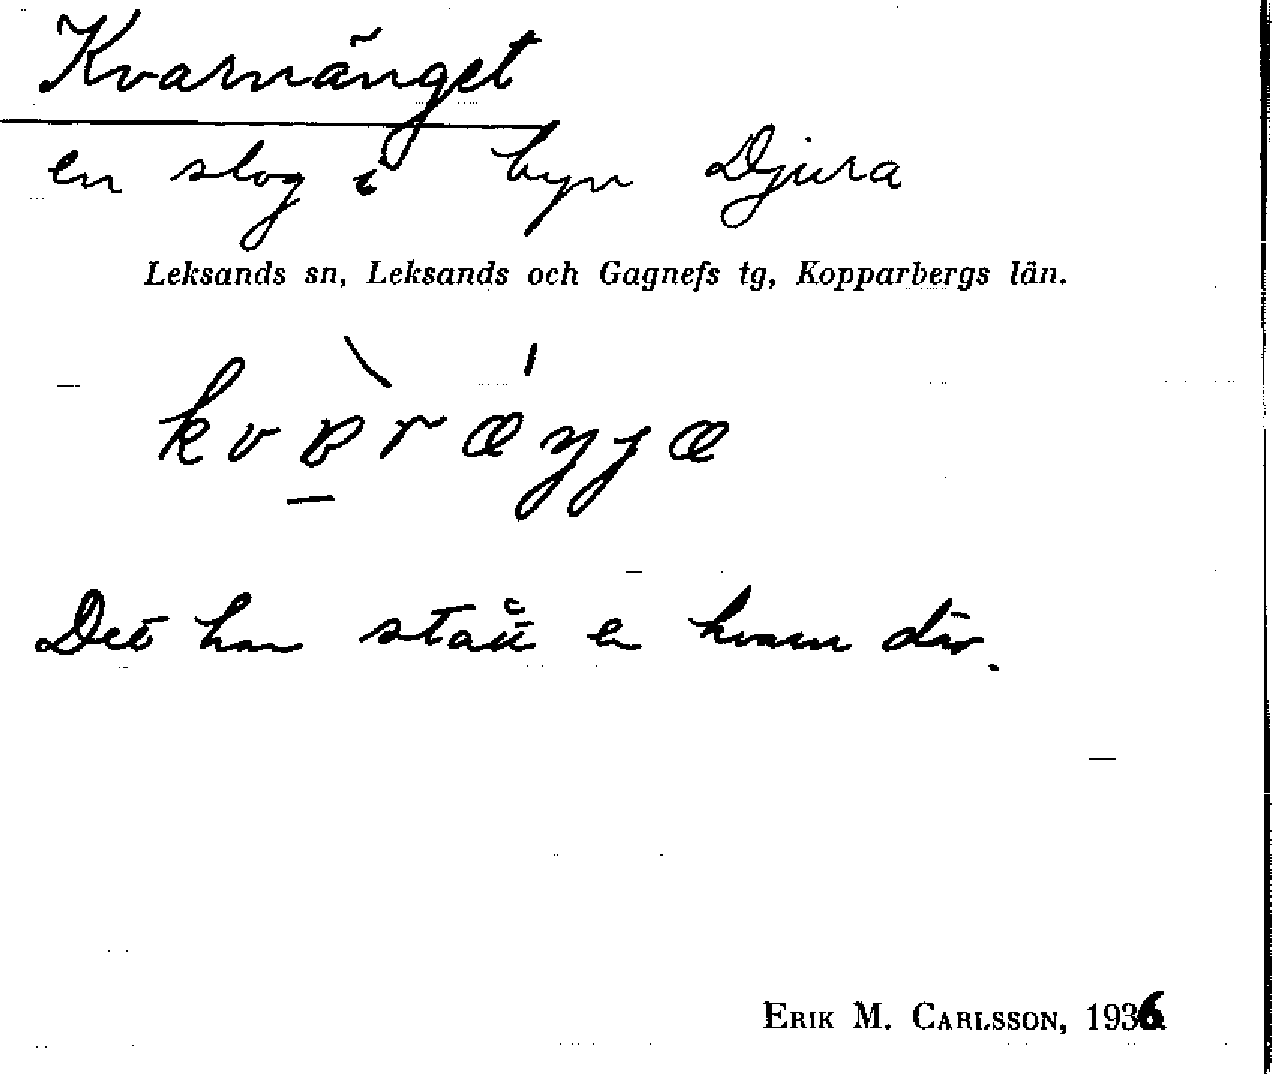 Kvarnänget
en slog i byn Djura
Leksands sn, Leksands och Gagnefs tg, Kopparbergs län.
Det har stått en kvarn där.
ERIK M. CARLSSON, 1936